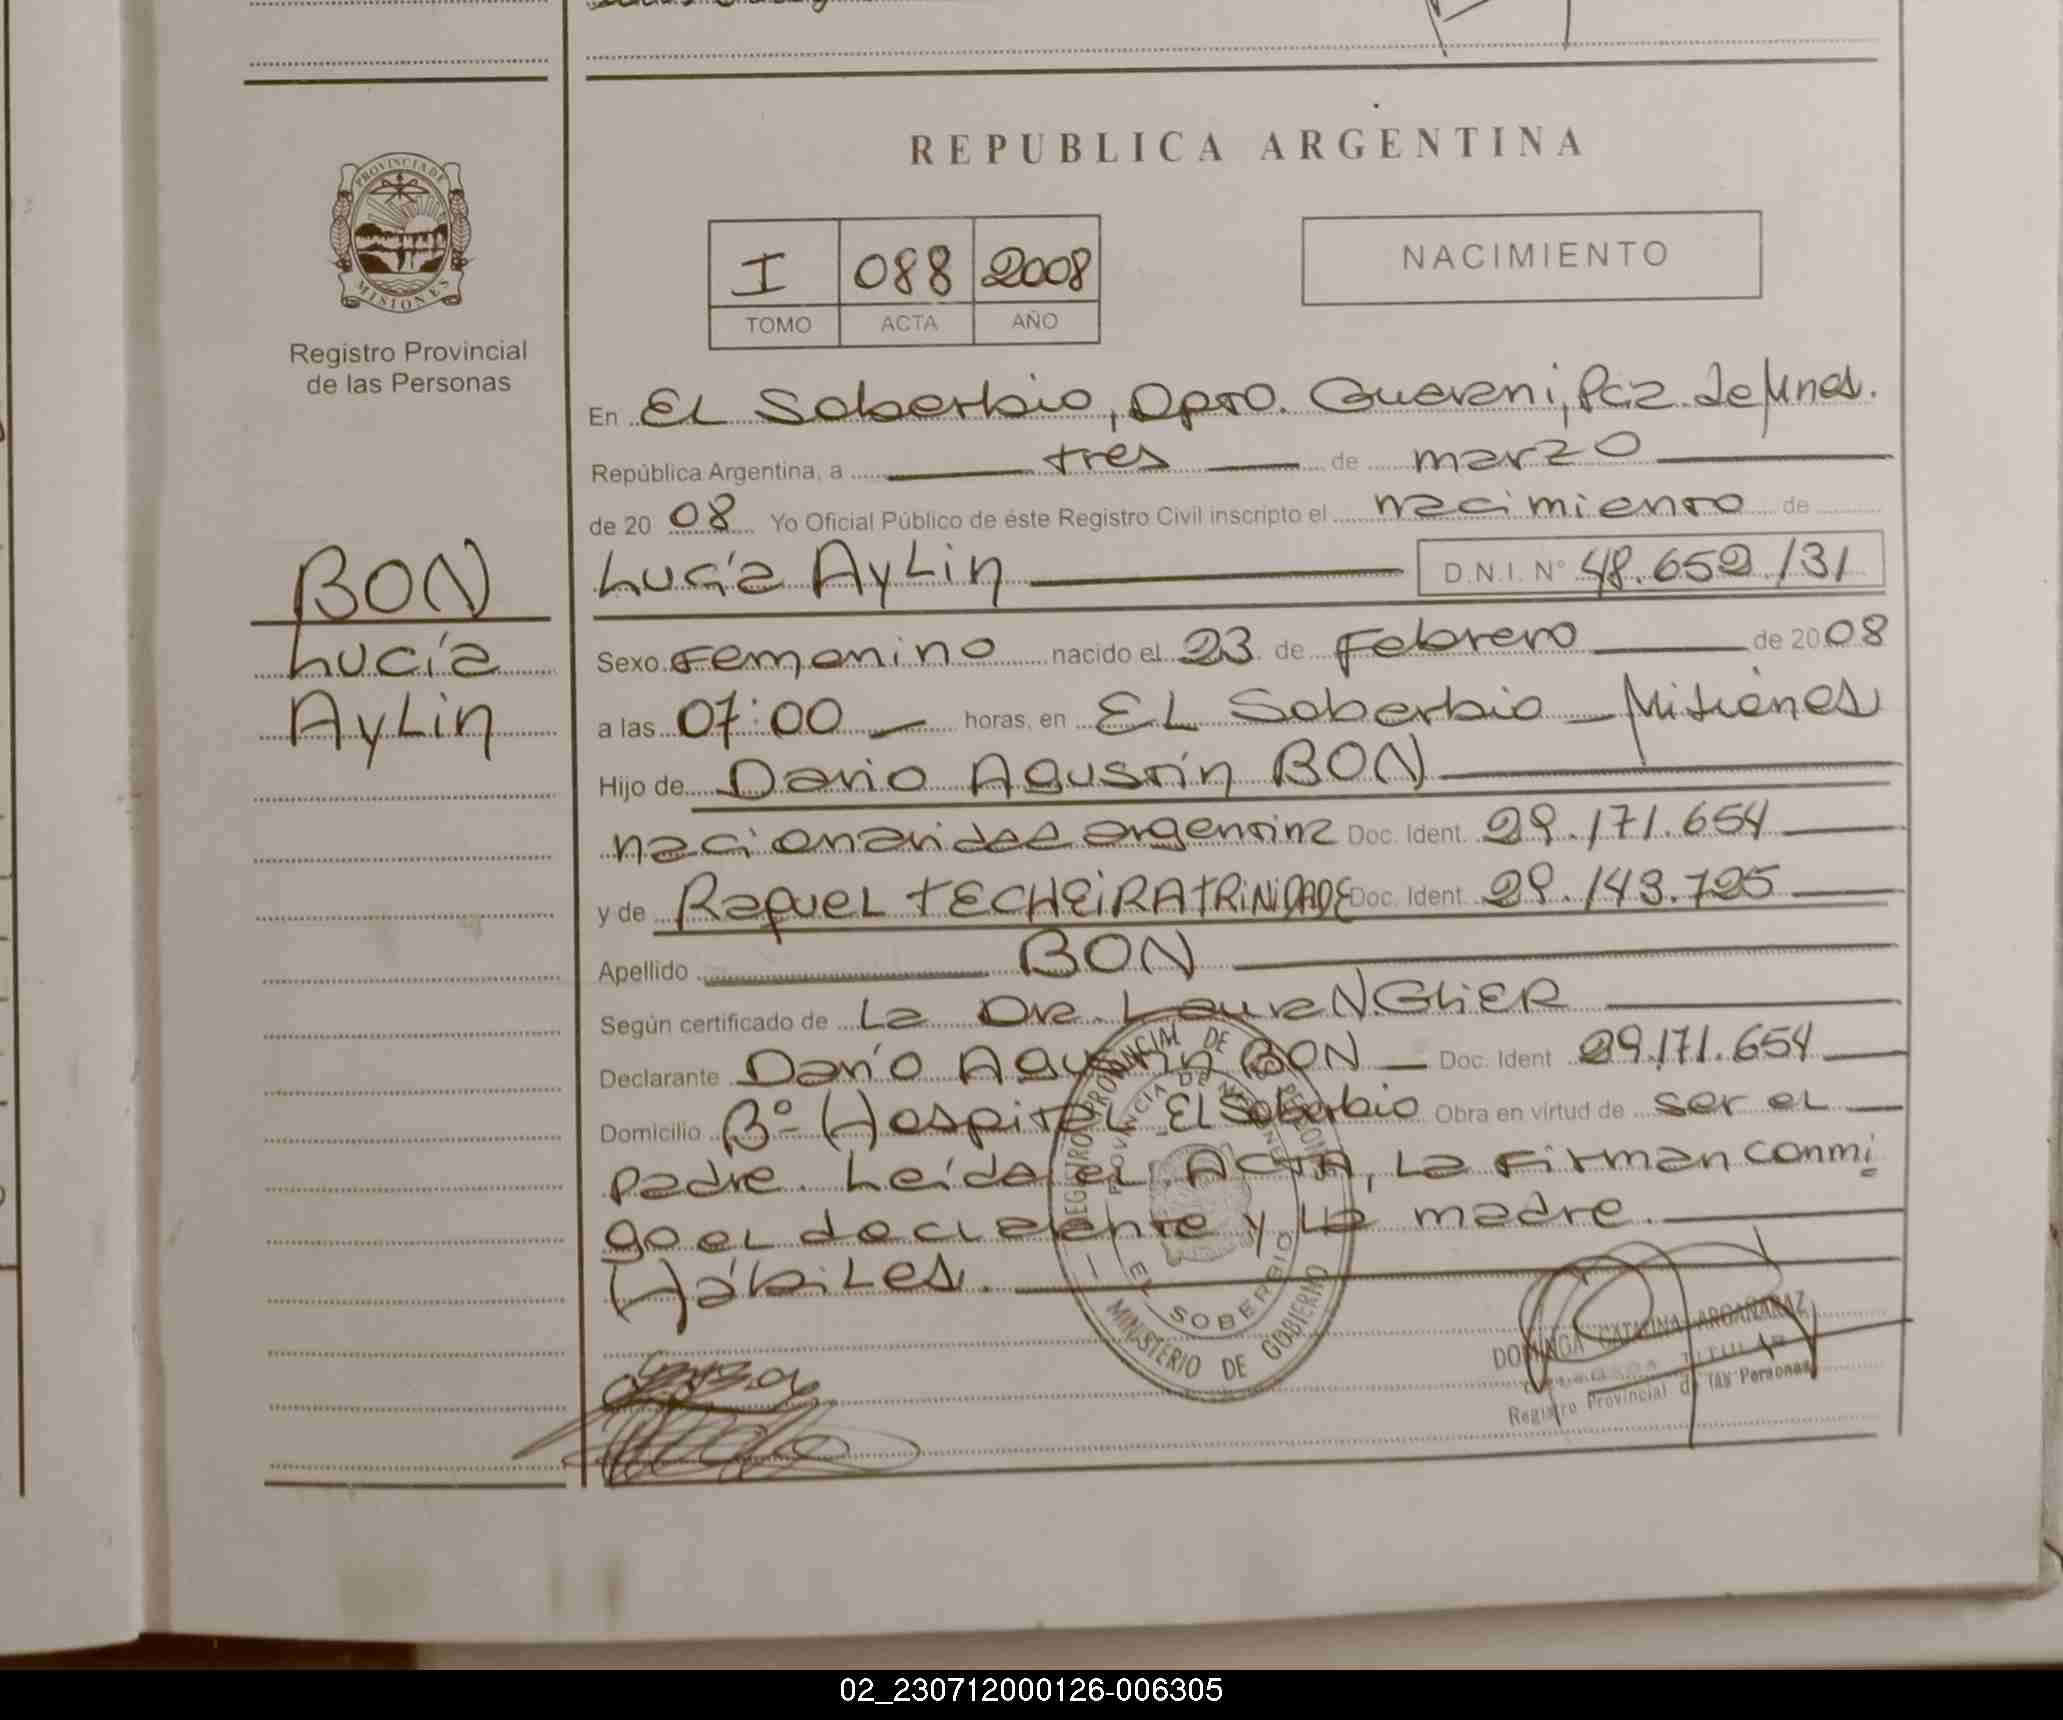 REPUBLICA ARGENTINA
PROVINCIA DE
MISIONES
Registro Provincial
de las Personas
I 088 2008
TOMO ACTA AÑO
NACIMIENTO
BON
Lucía
Aylin
En El Soberbio, Dpto. Guarani, Pcia. de Mnes.
República Argentina, a tres de marzo
de 2008 Yo Oficial Público de éste Registro Civil inscripto el nacimiento de
Lucía Aylin D.N.I. N° 48.652.131
Sexo Femenino nacido el 23 de Febrero de 2008
a las 07:00 horas, en El Soberbio - Misiones
Hijo de Dario Agustín BON
nacionalidad argentina Doc. Ident. 29.171.654
y de Raquel TECHEIRA TRINIDADE Doc. Ident. 29.143.725
Apellido BON
Según certificado de La Dra. Laura N. GLIER
Declarante Darío Agustín BON Doc. Ident 29.171.654
Domicilio Bº Hospital El Soberbio Obra en virtud de ser el
padre. Leída el ACTA, la firman conmi
go el declarante y la madre.
Hábiles.
REGISTRO PROVINCIAL DE LAS PERSONAS
PROVINCIA DE MISIONES
EL SOBERBIO
MINISTERIO DE GOBIERNO
DOMINGA CATALINA ARGAÑARAZ
TITULAR
Registro Provincial de las Personas
02_230712000126-006305